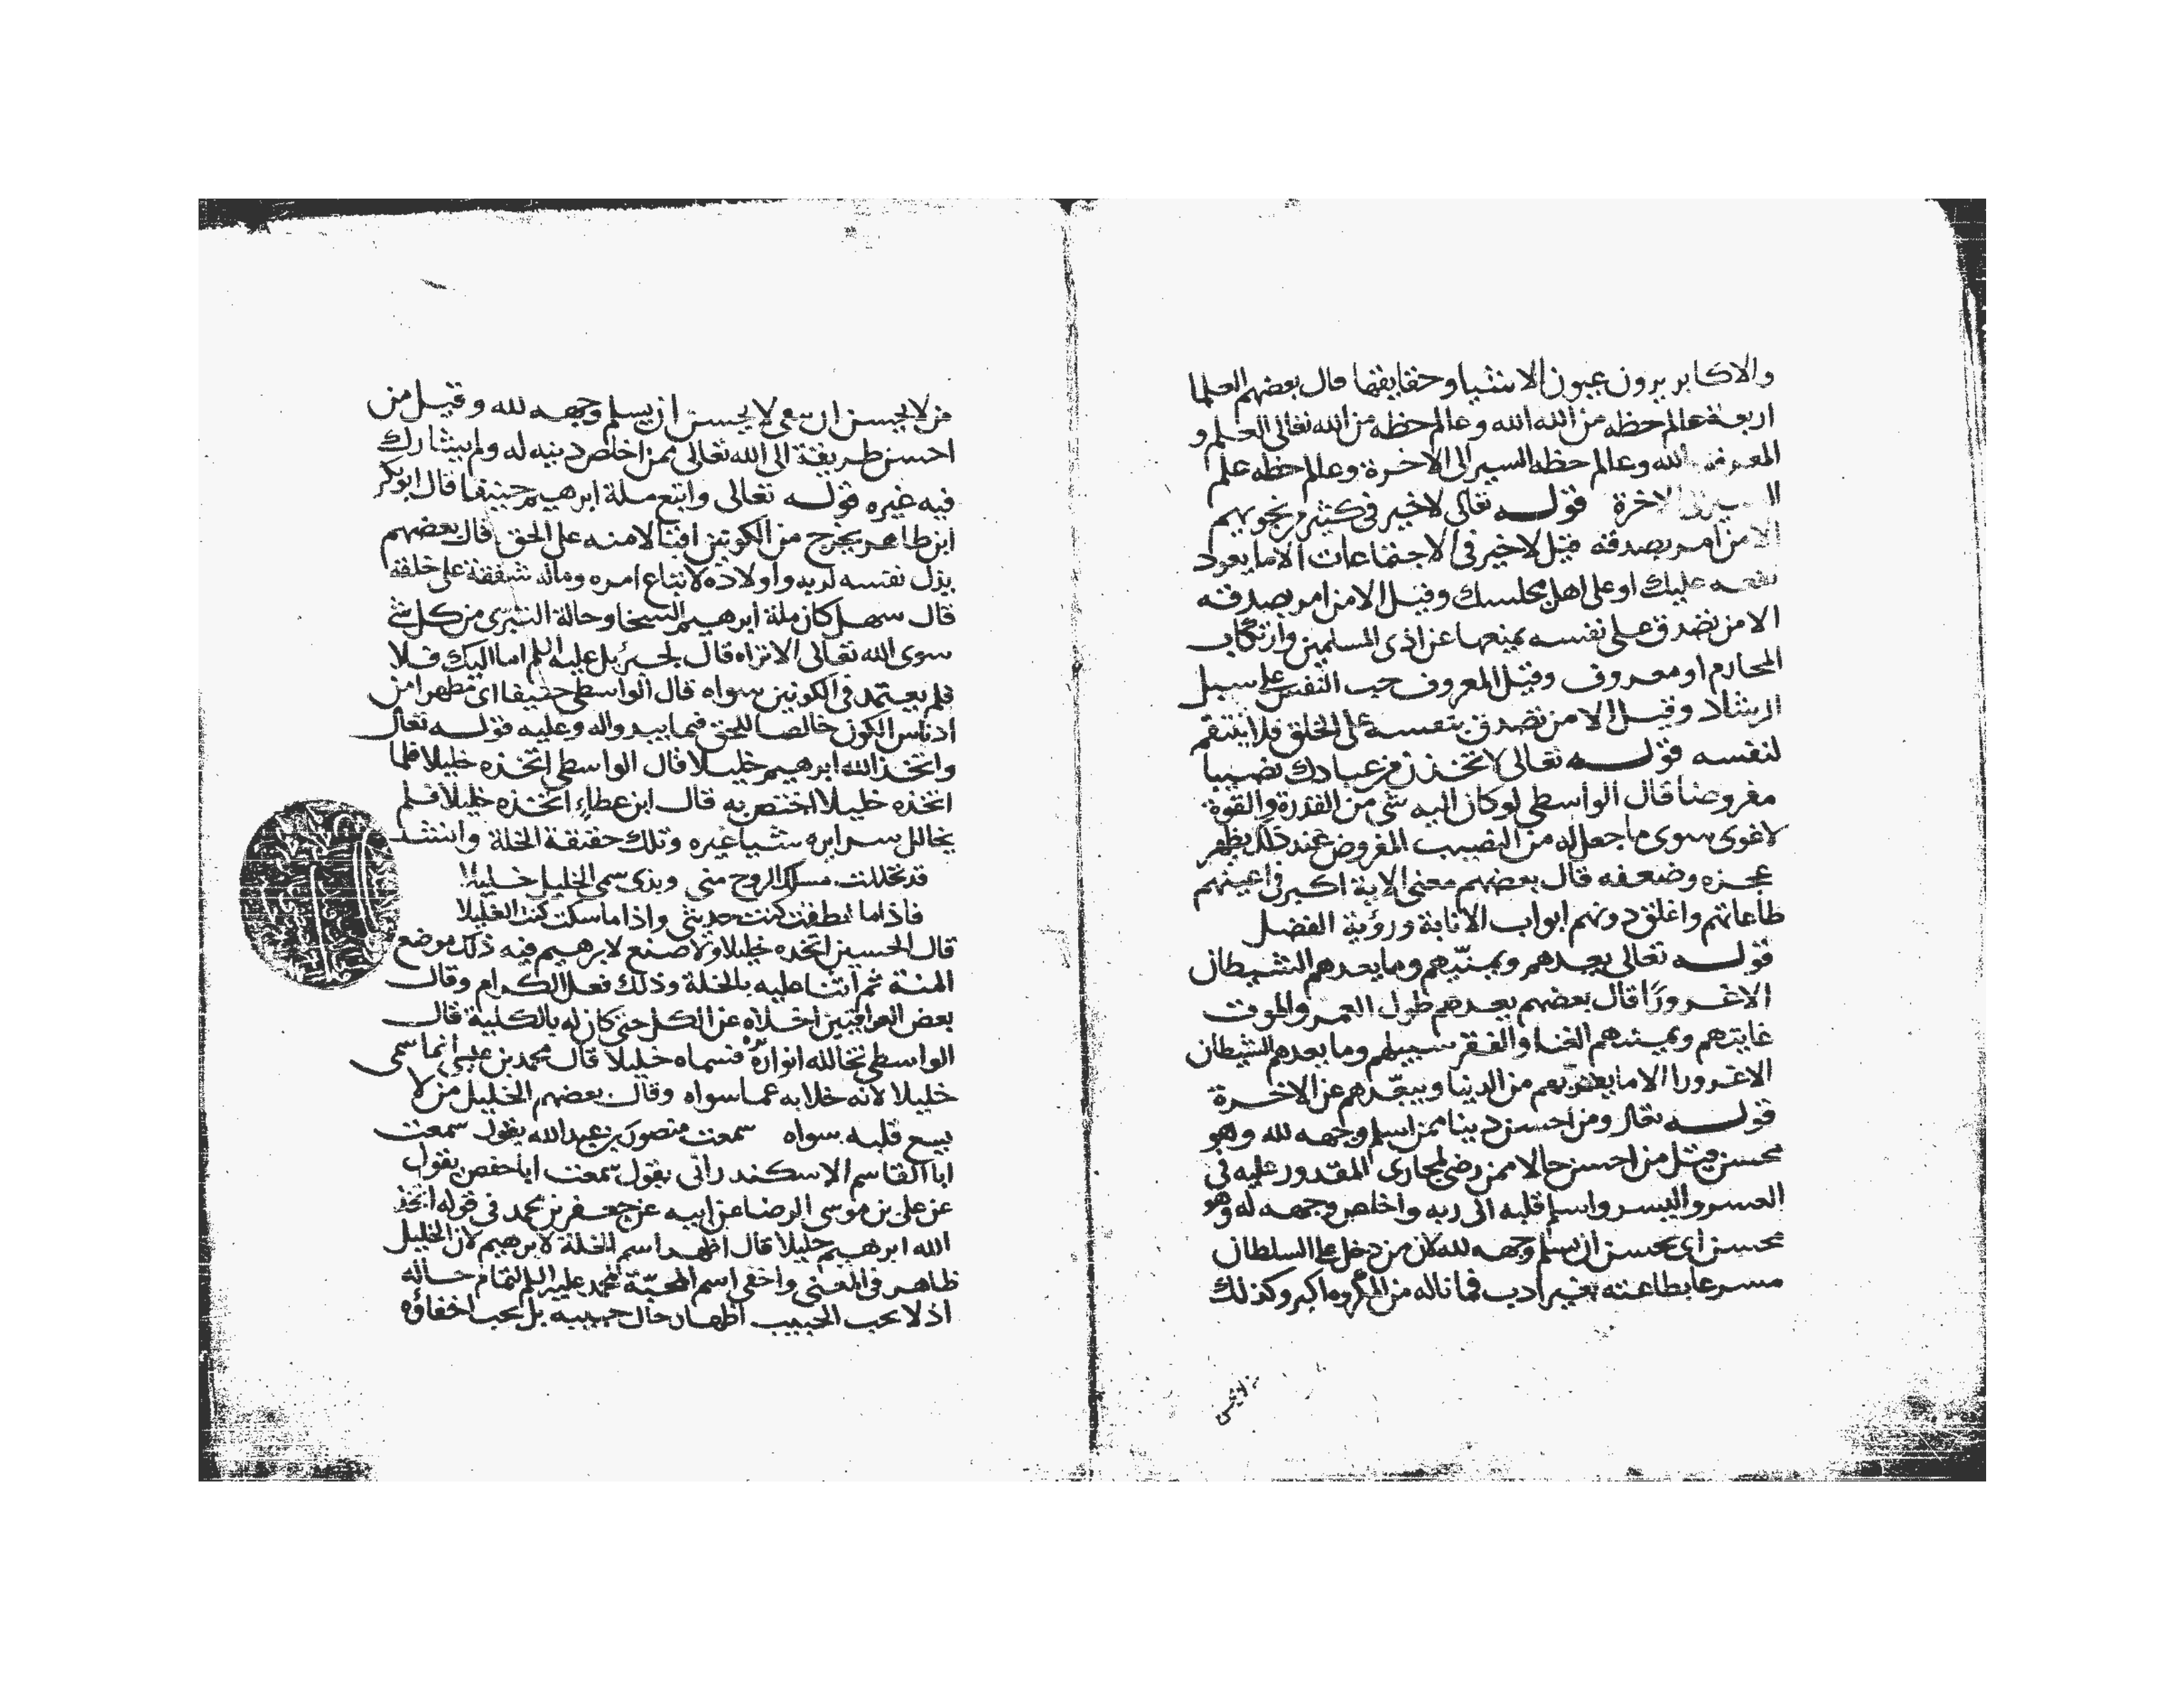 والاكابر يرون عيون الاشيا وحقايقها قال بعضهم العلما
اربعة عالم حظه من الله الله وعالم حظه من الله تعالى العلم و
المعرفة الله وعالم حظه السير الى الاخرة وعالم حظه علم
الاخرة قوله تعالى لا خير فى كثير من نجويهم
الا من امر بصدقة قيل لا خير فى الاجتماعات الا ما يعود
نفعه عليك او على اهل مجلسك وقيل الا من امر بصدقه
الا من تصدق على نفسه بمنعها عن اذى المسلمين وارتكاب
المحارم او معروف وقيل المعروف حب النفس على سبيل
الرشاد وقيل الا من تصدق بنفسه على الخلق فلا ينتقم
لنفسه قوله تعالى لاتخذن من عبادك نصيبا
مفروضا قال الواسطى لو كان اليه شى من القدرة والقوة
لاغوى سوى ما جعل له من النصيب المفروض عند ذلك يظهر
عجزه وضعفه قال بعضهم معنى الاية اكبر فى اعينهم
طاعاتهم واغلق دونهم ابواب الانابة ورؤية الفضل
قوله تعالى يعدهم ويمنّيهم وما يعدهم الشيطان
الا غرورًا قال بعضهم يعدهم طول العمر والموت
غايتهم ويمنيهم الغنا والفقر سبيلهم وما يعدهم الشيطان
الا غرورا الا ما يغرهم من الدنيا ويبعّدهم عن الاخرة
قوله تعالى ومن احسن دينا ممن اسلم وجهه لله وهو
محسن قيل من احسن حالا ممن رضى لمجارى المقدور عليه فى
العسر واليسر واسلم قلبه الى ربه واخلص وجهه له وهو
محسن اى يحسن ان يسلم وجهه لله لان من دخل على السلطان
مسرعا بطاعته بغير ادب فما ناله من المكروه اكبر وكذلك
من لا يحسن ان لا يحسن ان يسلم وجهه لله وقيل من
احسن طريقة الى الله تعالى ممن اخلص دينه له ولم يشارك
فيه غيره قوله تعالى واتبع ملة ابرهيم حنيفا قال ابو بكر
ابن طاهر يخرج من الكونين اقبالا منه على الحق قال بعضهم
بذل نفسه لربه واولاده لاتباع امره وماله شفقة على خلقه
قال سهل كان ملة ابرهيم السخا وحالة التبرى من كل شئ
سوى الله تعالى الا تراه قال لجبرئيل عليه السلم اما اليك فلا
فلم يعتمد فى الكونين سواه قال الواسطى حنيفا اى مطهرا من
ادناس الكون خالصا للحق فيما يبدو اله وعليه قوله تعالى
واتخذ الله ابرهيم خليلا قال الواسطى اتخذه خليلا فلما
اتخذه خليلا اختص به قال ابن عطاء اتخذه خليلا فلم
يخالل سرايره شيا غيره وتلك حقيقة الخلة وانشد
قد تخللت مسلك الروح منى وبذى سمى الخليل خليلا
فاذا ما نطقت كنت حديثى واذا ما سكت كنت الغليلا
قال الحسين اتخذه خليلا ولا صنع لابرهيم فيه ذلك موضع
المنة ثم اثنا عليه بالخلة وذلك فعل الكرام وقال
بعض العراقيين اخلاه عن الكل حتى كان له بالكلية قال
الواسطى تخالله انواره فسماه خليلا قال محمد بن عيسى انما سمى
خليلا لانه خلا به عما سواه وقال بعضهم الخليل من لا
يسع قلبه سواه سمعت منصور بن عبد الله يقول سمعت
ابا القاسم الاسكندرانى يقول سمعت ابا حفص يقول
عن على بن موسى الرضا عن ابيه عن جعفر بن محمد فى قوله اتخذ
الله ابرهيم خليلا قال اظهر اسم الخلة لابرهيم لان الخليل
ظاهر فى المعنى واخفى اسم المحبّة لمحمد عليه السلم لتمام حاله
اذ لا يحب الحبيب اظهار حال حبيبه بل يحب اخفاؤه